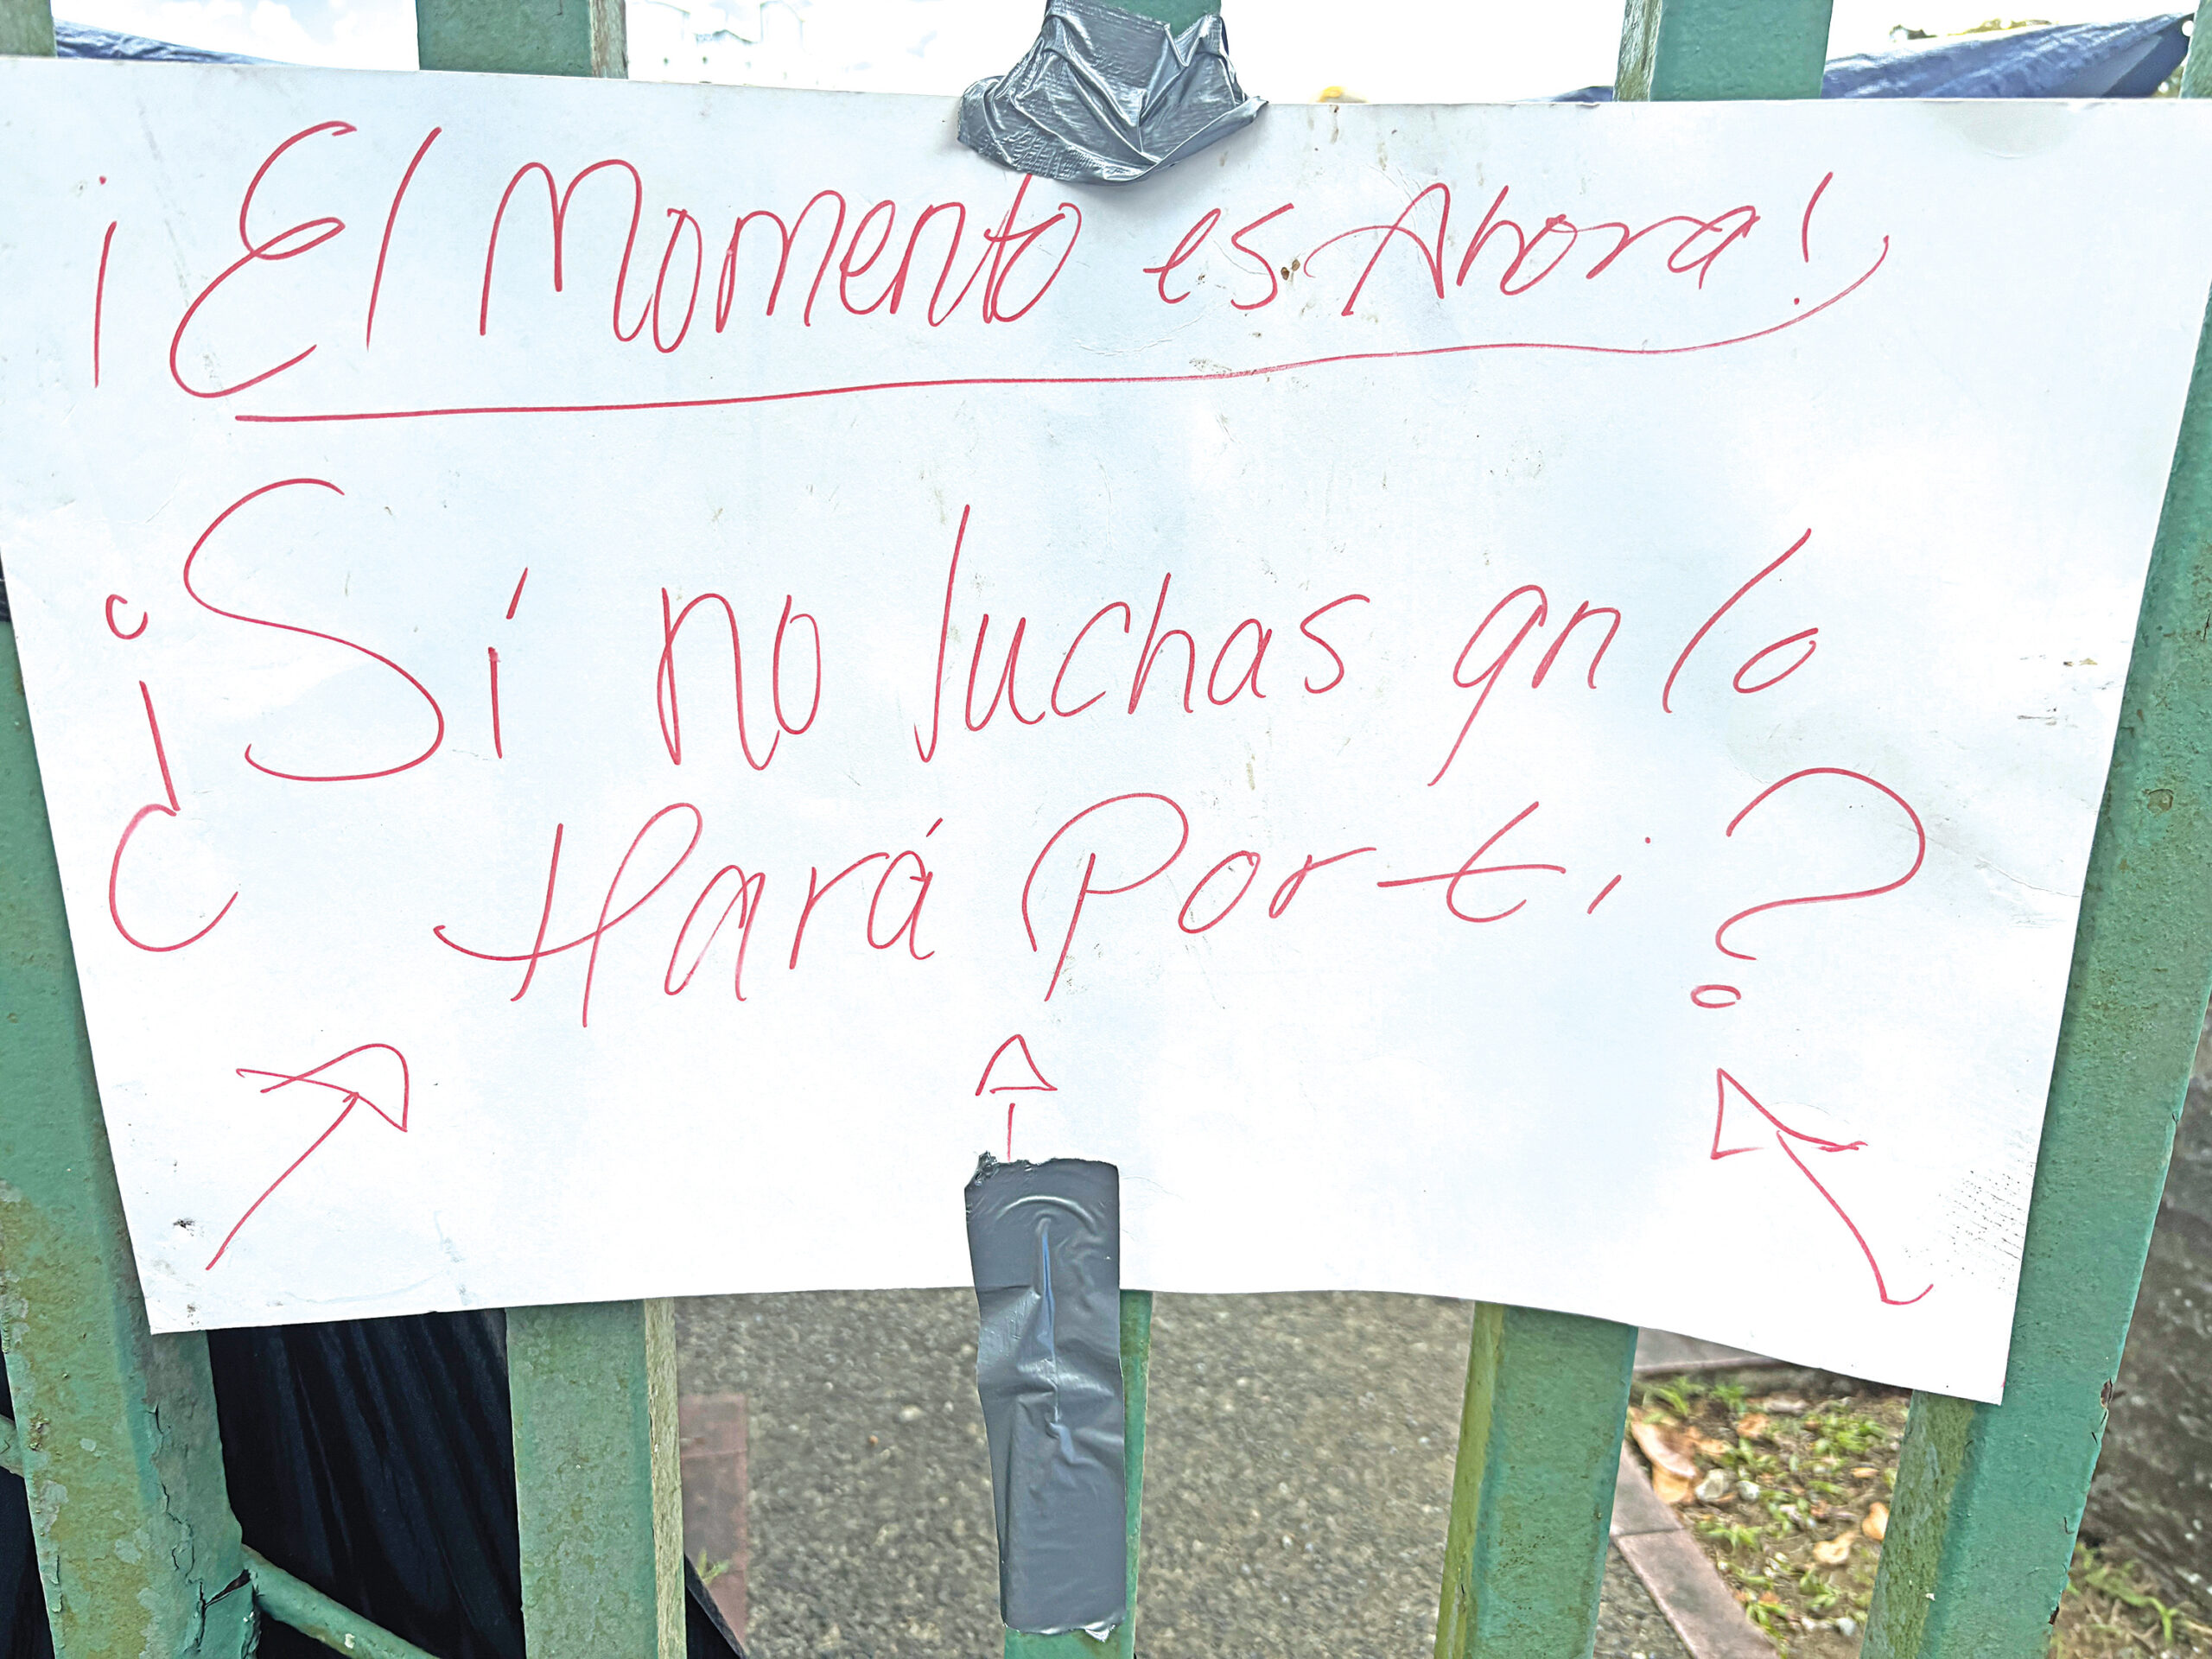 ¡El Momento es Ahora!
¿Sí no luchas qn lo
Hará Por ti?